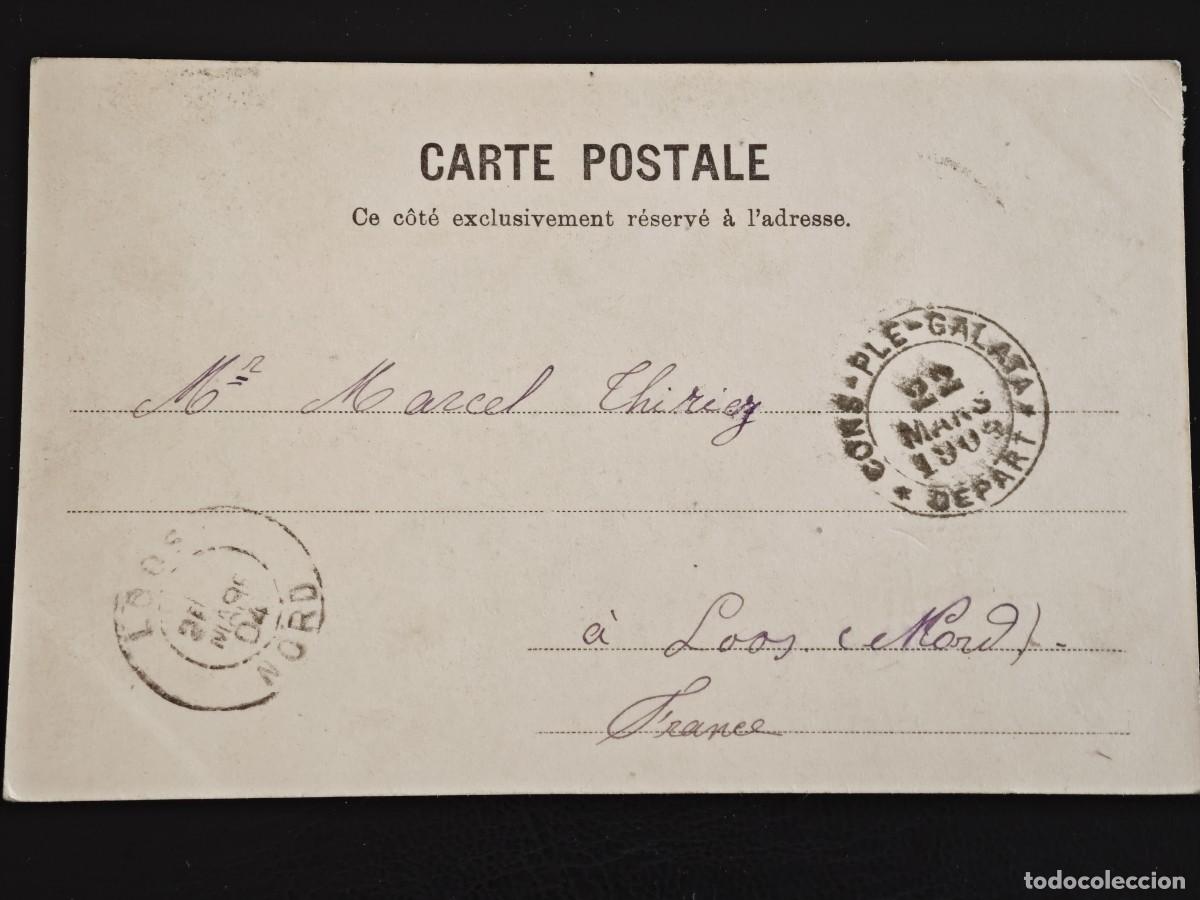 CARTE POSTALE
Ce côté exclusivement réservé à l'adresse.
Mr Marcel Thiriez
CONS-PLE-GALATA
22
MARS
DEPART
LOOS
MARS
04
NORD
à Loos (Nord)-
France
todocoleccion